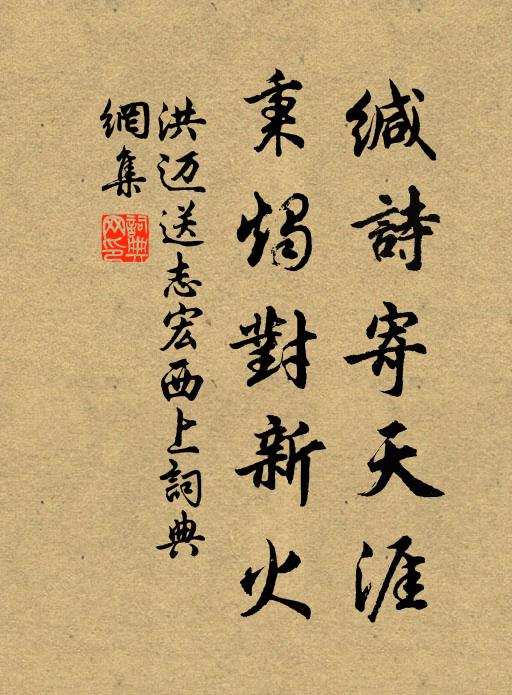 缄詩寄天涯
秉燭對新火
洪迈送志宏西上詞典
網集
詞典
网印